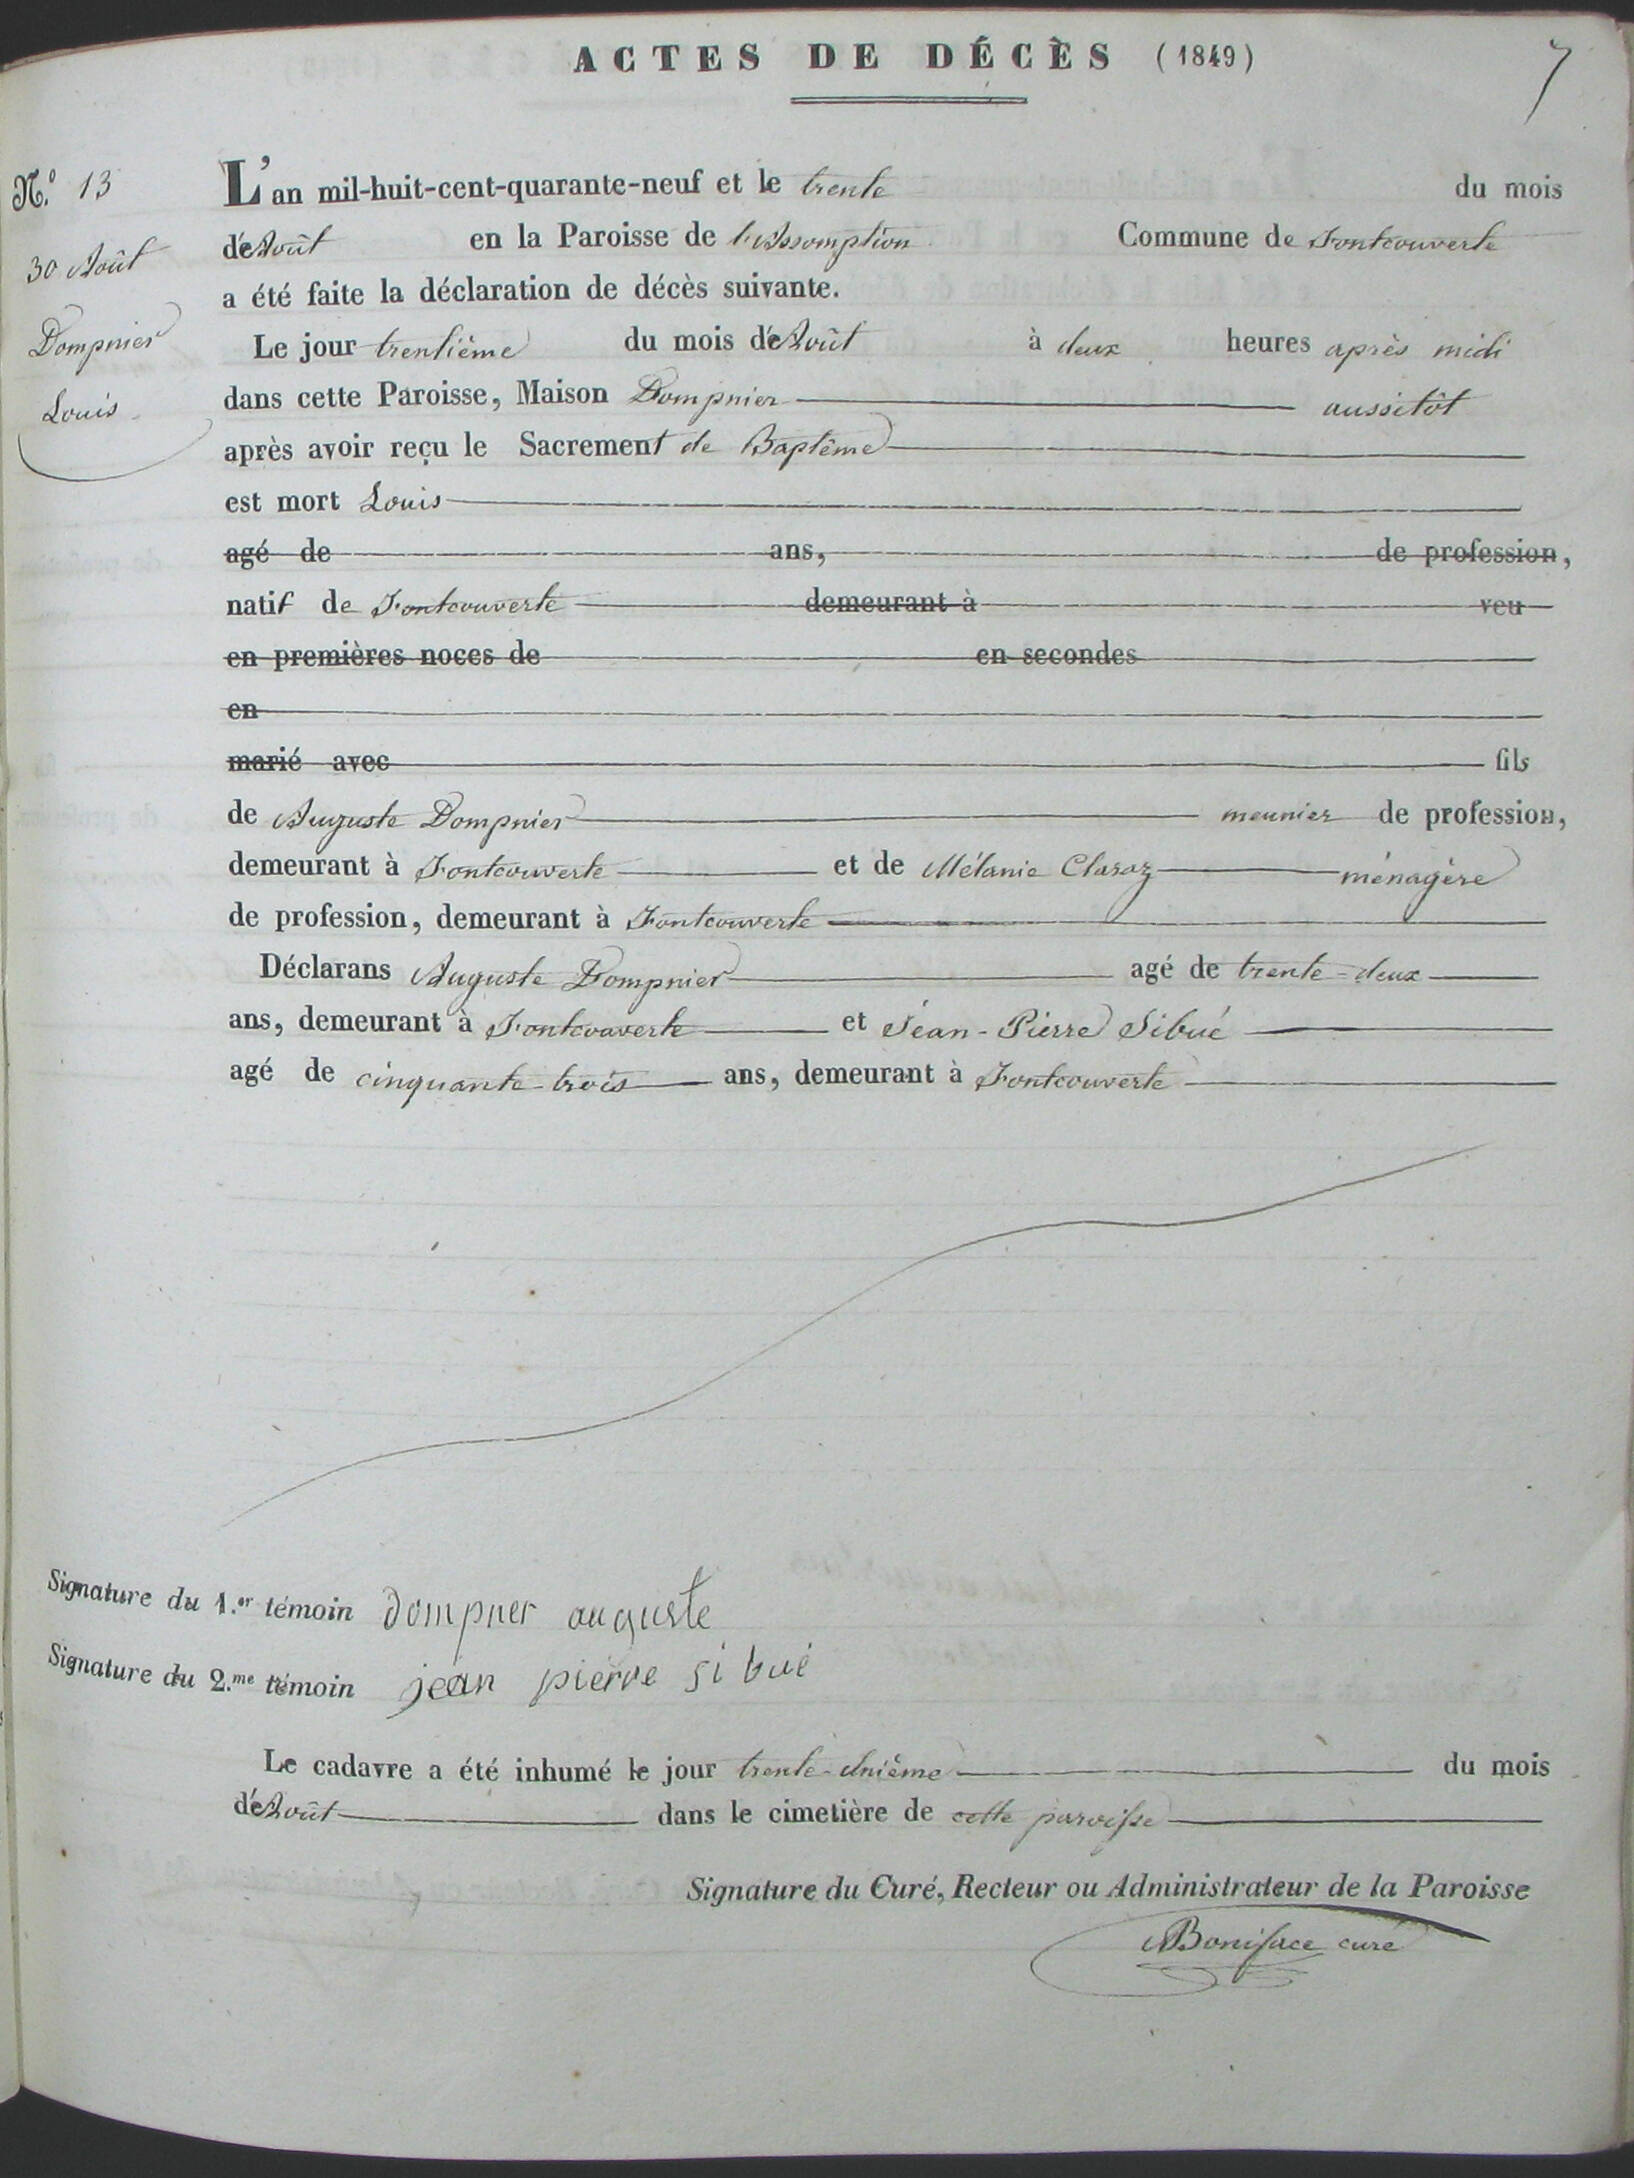 ACTES DE DÉCÈS (1849)
7
N.º 13
30 Août
Dompnier
Louis
L'an mil-huit-cent-quarante-neuf et le trente du mois
d'Août en la Paroisse de l'Assomption Commune de Fontcouverte
a été faite la déclaration de décès suivante.
Le jour trentième du mois d'Août à deux heures après midi
dans cette Paroisse, Maison Dompnier aussitôt
après avoir reçu le Sacrement de Baptême
est mort Louis
agé de ans, de profession,
natif de Fontcouverte demeurant à veu
en premières noces de en secondes
en
marié avec fils
de Auguste Dompnier meunier de profession,
demeurant à Fontcouverte et de Mélanie Claraz ménagère
de profession, demeurant à Fontcouverte
Déclarans Auguste Dompnier agé de trente-deux
ans, demeurant à Fontcouverte et Jean-Pierre Sibué
agé de cinquante trois ans, demeurant à Fontcouverte
Signature du 1.er témoin dompner auguste
Signature du 2.me témoin jean pierre sibué
Le cadavre a été inhumé le jour trente-unième du mois
d'Août dans le cimetière de cette paroisse
Signature du Curé, Recteur ou Administrateur de la Paroisse
Boniface curé